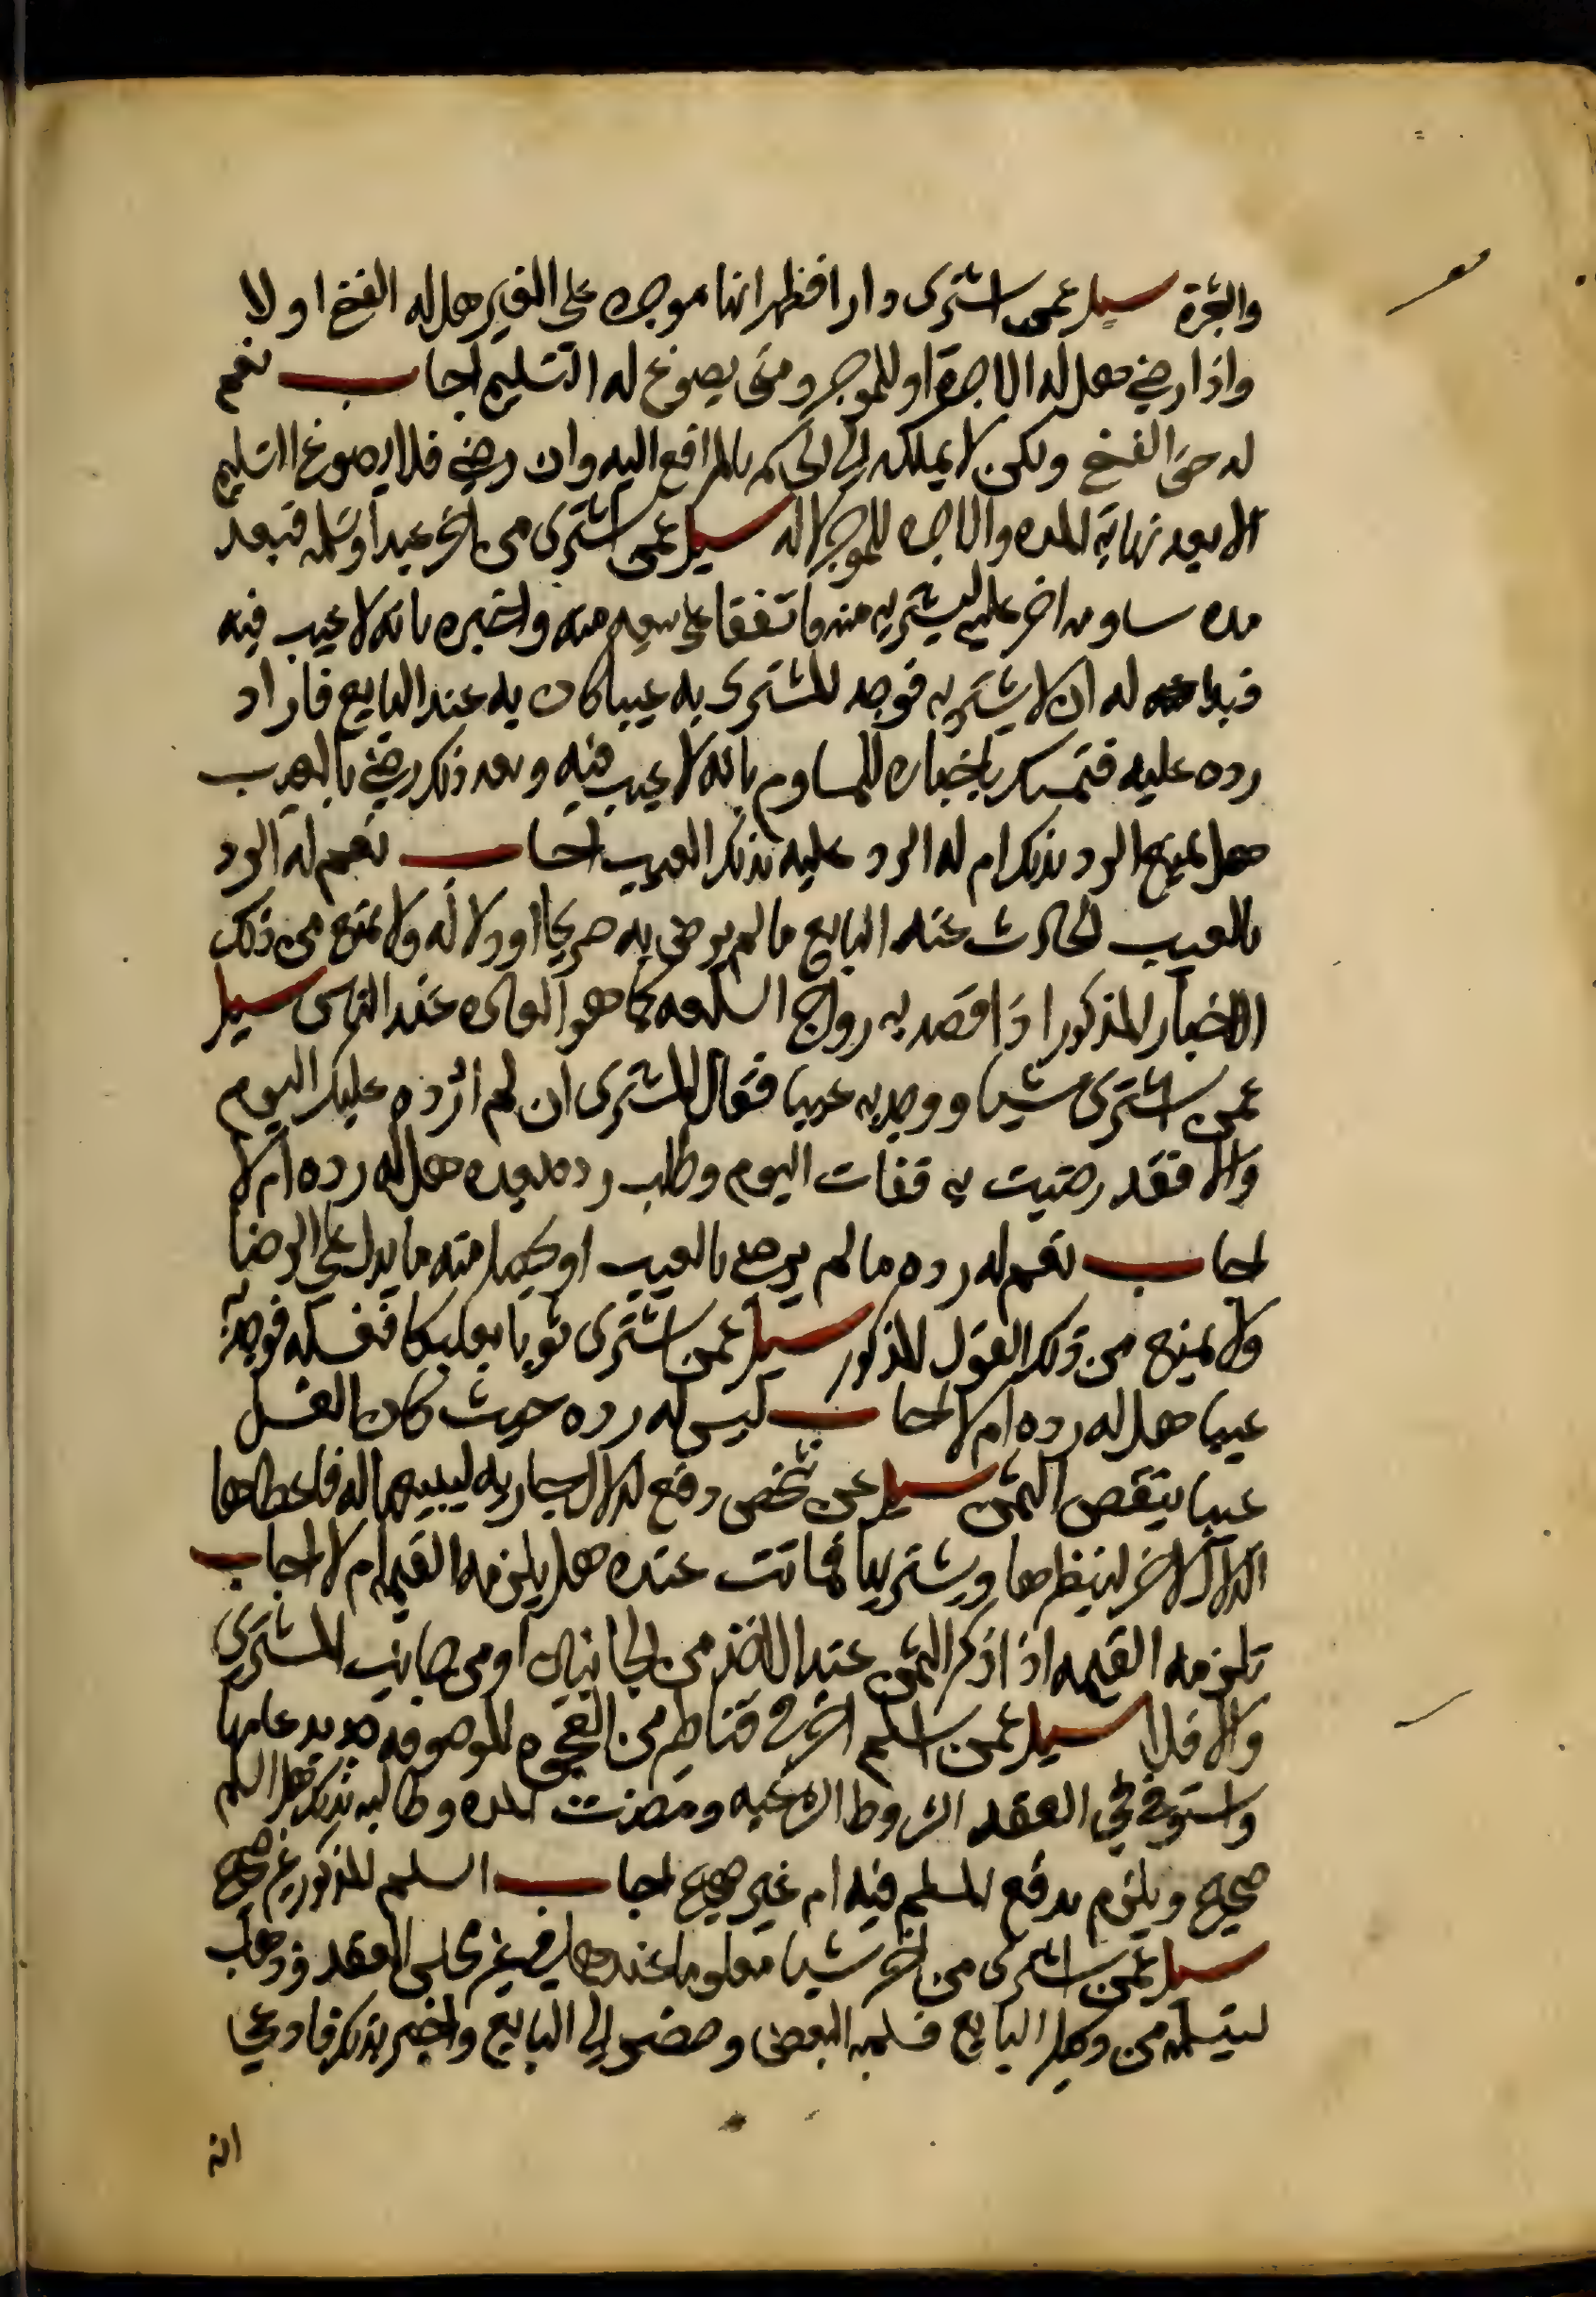 والثمرة سيل عمن اشترى دارا فظهر انها موجره على الغير هل له الفسخ او لا
واذا رضي هل له الاجرة او للموجر ومتى يصوغ له التسليم اجاب نعم
له حق الفسخ ولكن لا يملكه الى الحاكم بالمرافع اليه وان رضي فلا يصوغ التسليم
الا بعد نهاية المده والاجره للموجر لا له سيل عمن اشترى من اخر عبدا وتسلمه فبعد
مده ساومه اخر عليه ليشتريه منه فاتفقا على بيعه منه واخبره بانه لا عيب فيه
فبدا له ان لا يشتريه فوجد المشترى به عيبا كان به عند البايع فاراد
رده عليه فتمسك باخباره للمساوم بانه لا عيب فيه وبعد ذلك رضي بالعيب
هل يمتنع الرد بذلك ام له الرد عليه بذلك العيب اجاب نعم له الرد
بالعيب الحادث عند البايع ما لم يرضى به صريحا او دلاله ولا يمنع من ذلك
الاخبار المذكور اذا قصد به رواج السلعه كما هو العاده عند الناس سيل
عمن اشترى شيا ووجد به عيبا فقال المشترى ان لم ارده عليك اليوم
والا فقد رضيت به ففات اليوم وطلب رده بعده هل له رده ام لا
اجاب نعم له رده ما لم يرض بالعيب او يحصل منه ما يدل على الرضا
ولا يمنع من ذلك القول المذكور سيل عمن اشترى ثوبا بعلبكا فغسله فوجد به
عيبا هل له رده ام لا اجاب ليس له رده حيث كان الغسل
عيبا ينقص الثمن سيل عن شخص دفع لدلال جاريه ليبيعها له فاعطاها
الدلال لاخر لينظرها ويشتريها فماتت عنده هل يلزمه القيمه ام لا اجاب
تلزمه القيمه اذا ذكر الثمن عند الاخذ من الجانبين او من جانب المشترى
والا فلا سيل عمن اسلم اخر في قناطير من القجوه الموصوفه جديد عامها
واستوفى في العقد الشروط الشرعيه ومضت المده وطالبه بذلك فهل السلم
صحيح ويلزم بدفع المسلم فيه ام غير صحيح اجاب السلم المذكور غير صحيح
سيل عمن اشترى من اخر شيا معلوما عندهما في غير مجلس العقد فذهب
ليتسلمه من وكيل البايع فسلمه البعض وحضر الى البايع واخبر بذلك فادعى
انه